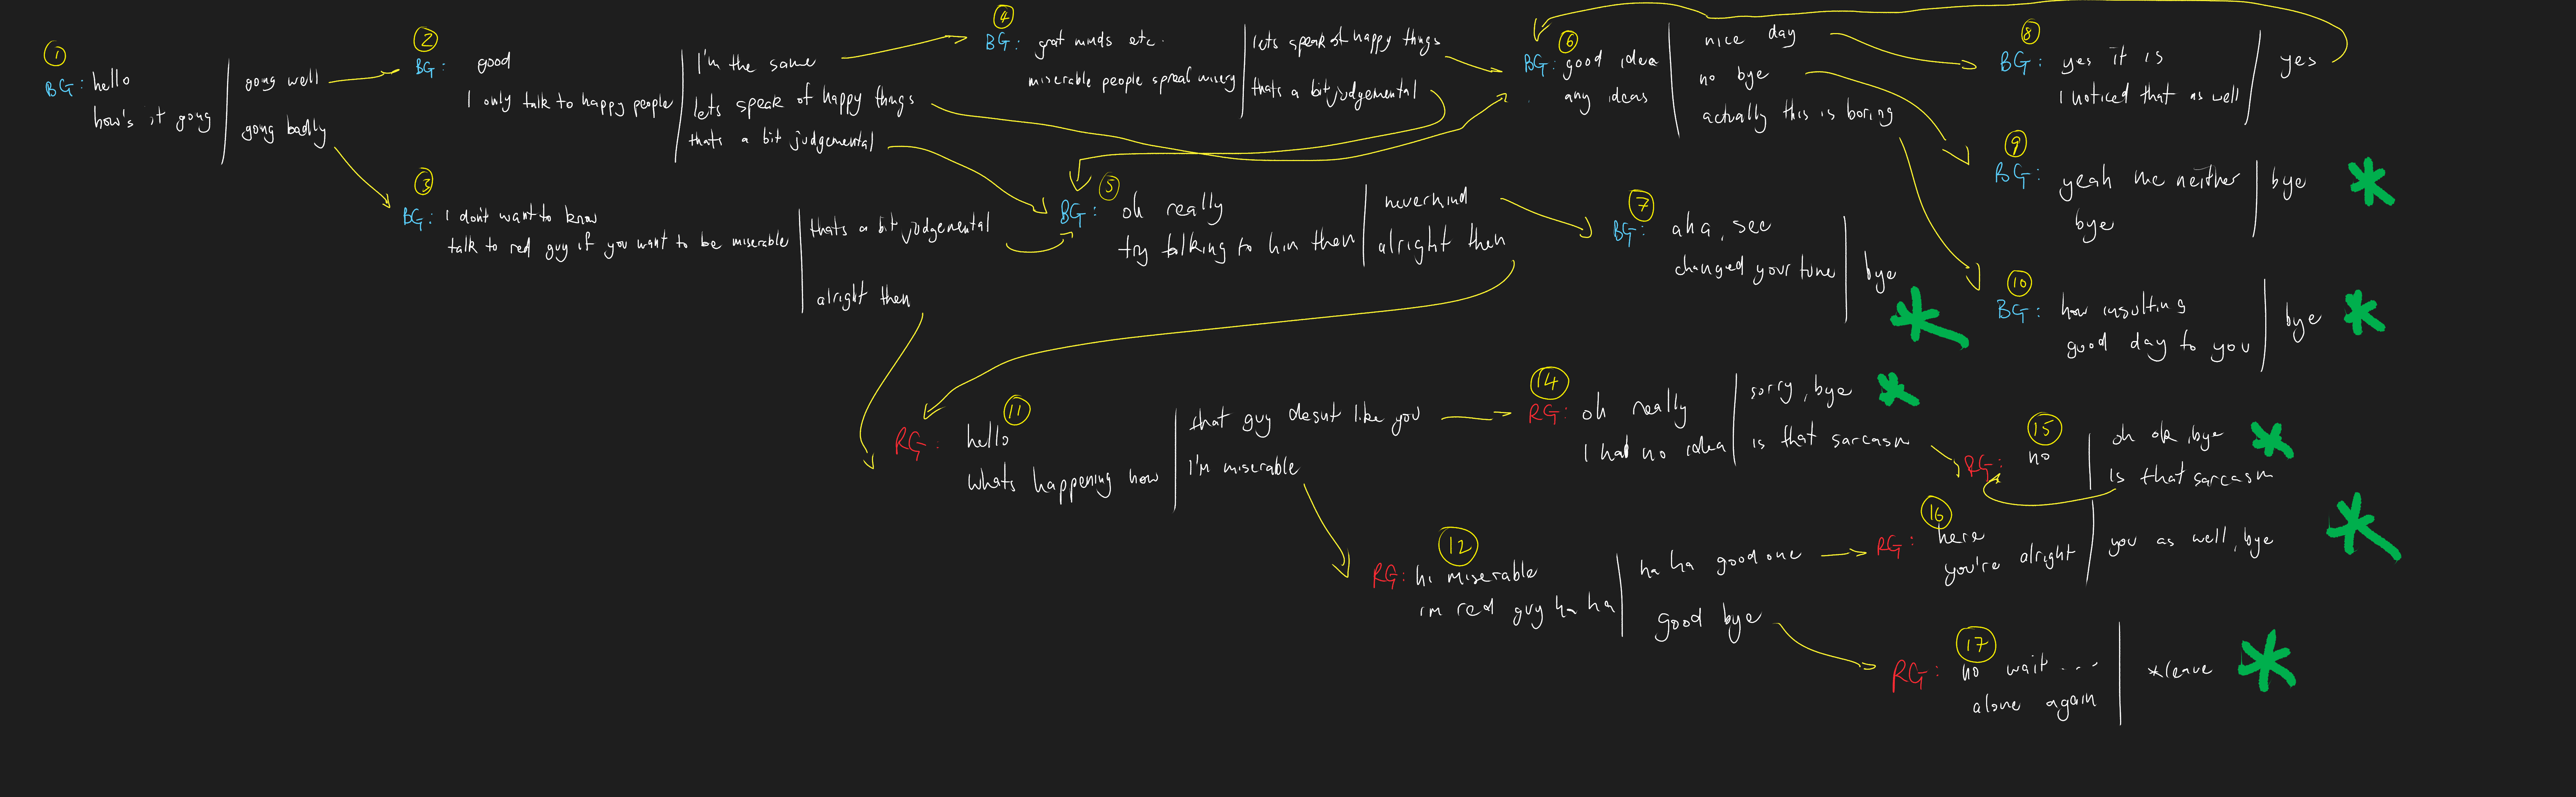 1
BG: hello
how's it going
going well
going badly
2
BG: good
I only talk to happy people
I'm the same
lets speak of happy things
thats a bit judgemental
3
BG: I don't want to know
talk to red guy if you want to be miserable
thats a bit judgemental
alright then
4
BG: grat minds etc.
miserable people spread misery
lets speak of happy things
thats a bit judgemental
5
BG: oh really
try talking to him then
nevermind
alright then
6
BG: good idea
any ideas
nice day
no bye
actually this is boring
7
BG: aha, see
changed your tune
bye
8
BG: yes it is
I noticed that as well
yes
9
BG: yeah me neither
bye
bye
10
BG: how insulting
good day to you
bye
11
RG: hello
whats happening now
that guy desnt like you
I'm miserable
14
RG: oh really
I had no idea
sorry, bye
is that sarcasm
15
RG: no
oh ok, bye
is that sarcasm
12
RG: hi miserable
im red guy ha ha
ha ha good one
good bye
16
RG: here
you're alright
you as well, bye
17
RG: no wait ....
alone again
*leave